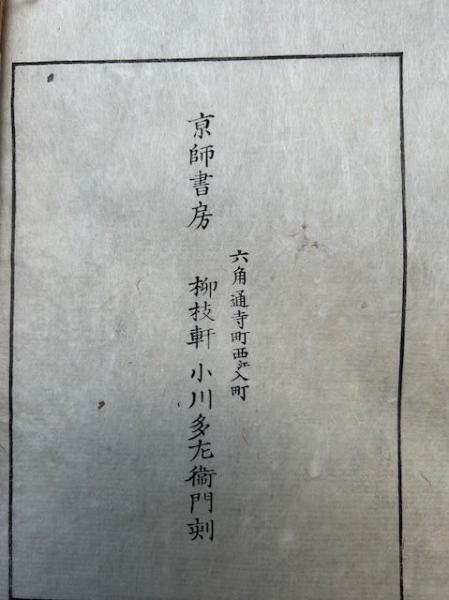 六角通寺町西江入町
京師書房 柳枝軒 小川多左衞門刻